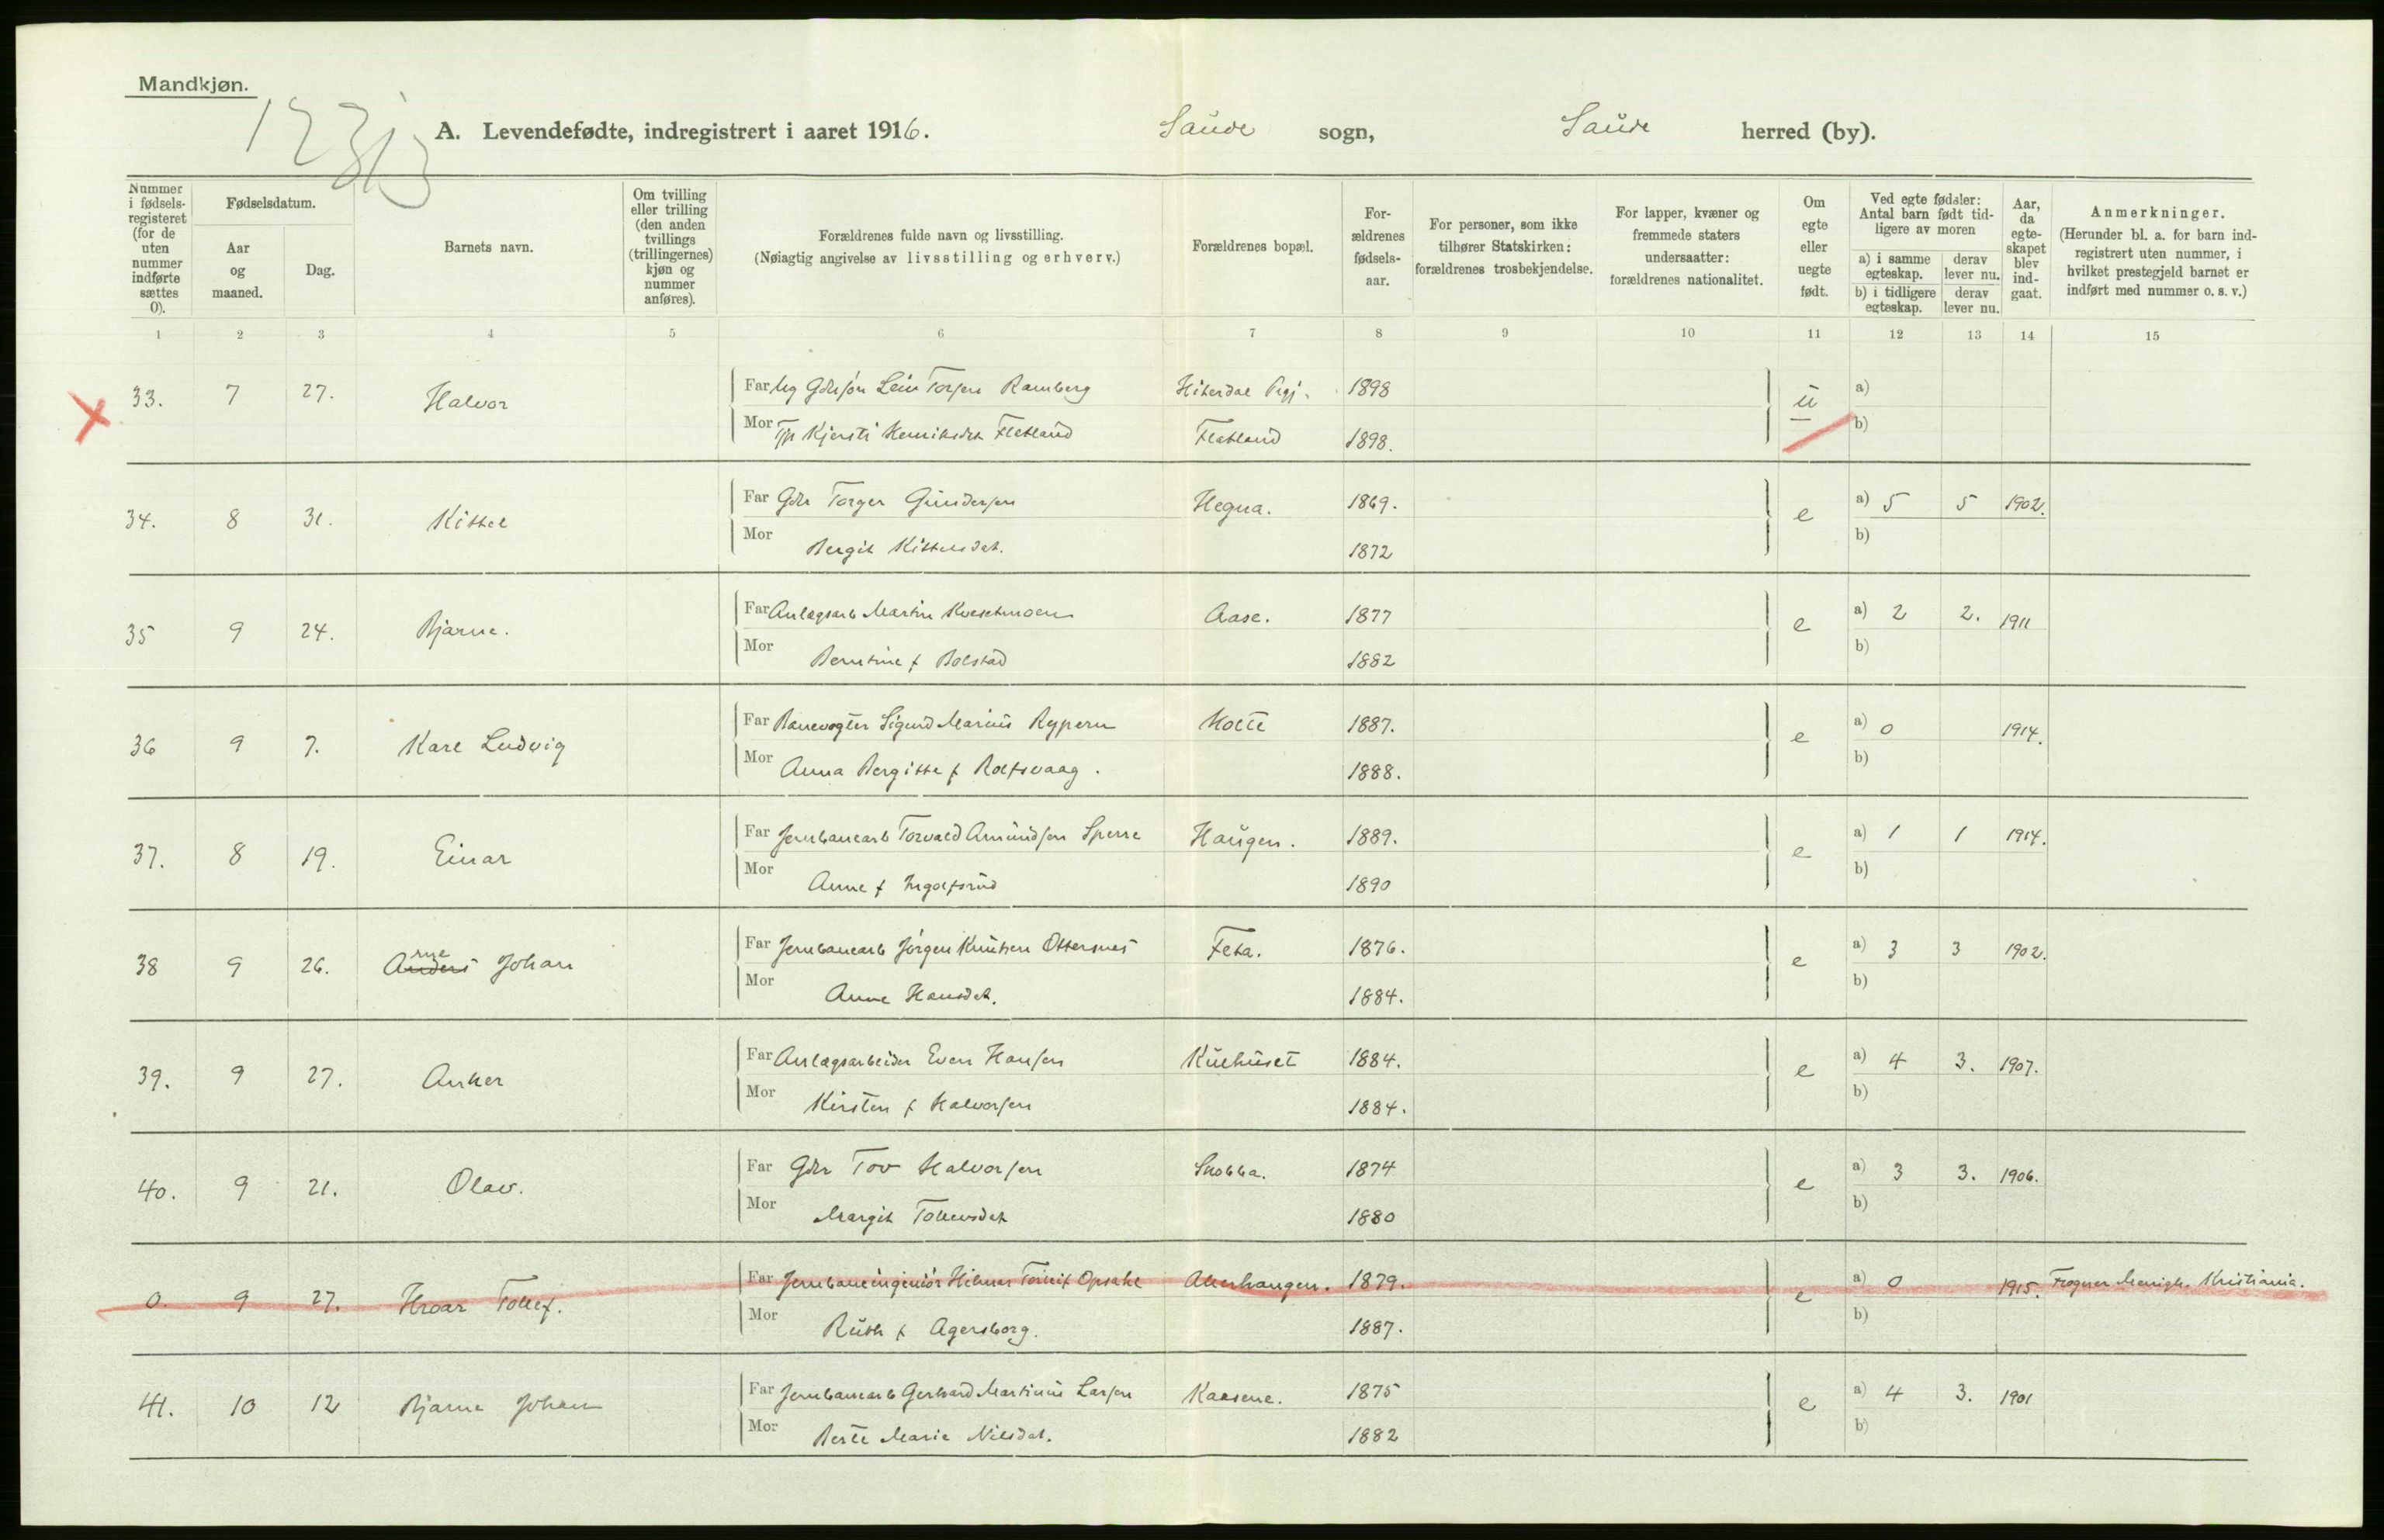 Mandkjøn.
A. Levendefødte, indregistrert i aaret 1916. Saude sogn, Saude herred (by).
Nummer i fødsels-registeret (for de uten nummer indførte sættes 0).
Fødselsdatum.
Aar og maaned.
Dag.
Barnets navn.
Om tvilling eller trilling (den anden tvillings (trillingernes) kjøn og nummer anføres).
Forældrenes fulde navn og livsstilling.
(Nøiagtig angivelse av livsstilling og erhverv.)
Forældrenes bopæl.
For-ældrenes fødsels-aar.
For personer, som ikke tilhører Statskirken: forældrenes trosbekjendelse.
For lapper, kvæner og fremmede staters undersaatter: forældrenes nationalitet.
Om egte eller uegte født.
Ved egte fødsler: Antal barn født tid-ligere av moren
a) i samme egteskap. derav lever nu.
b) i tidligere egteskap. derav lever nu.
Aar, da egte-skapet blev ind-gaat.
Anmerkninger.
(Herunder bl. a. for barn ind-registrert uten nummer, i hvilket prestegjeld barnet er indført med nummer o. s. v.)
1 2 3 4 5 6 7 8 9 10 11 12 13 14 15
33. 7 27. Halvor Far Ug Gdrsøn Leiv Torsen Ramberg Hiterdal Prgj. 1898 u a)
Mor Tjp Kjersti Henriksdat Flatland Flatland 1898. b)
34. 8 31. Kittel Far Gdr Torger Gundersen Hegna. 1869. e a) 5 5 1902.
Mor Bergit Kittelsdat. 1872 b)
35 9 24. Bjarne. Far Anlægsarb Martin Aase. 1877 e a) 2 2. 1911
Mor Berntine f Bolstad 1882 b)
36 9 7. Kare Ludvig Far Banevogter Sigurd Marius Rypern Holte 1887. e a) 0 1914.
Mor Anna Bergitte f Rolfsvaag. 1888. b)
37. 8 19. Einar Far Jernbanearb Torvald Amundsen Sperre Haugen. 1889. e a) 1 1 1914.
Mor Anne f Ingolfsrud 1890 b)
38 9 26. Arne Johan Far Jernbanearb Jørgen Knutsen Ottersnes Feta. 1876. e a) 3 3 1902.
Mor Anne Hansdat. 1884. b)
39. 9 27. Anker Far Anlægsarbeider Even Hansen Kulhuset 1884. e a) 4 3. 1907.
Mor Kirsten f Halvorsen 1884. b)
40. 9 21. Olav. Far Gdr Tov Halvorsen Snobba. 1874 e a) 3 3. 1906.
Mor Margit Tollevsdat 1880 b)
0. 9 27. Hroar Tollef. Far Jernbaneingeniør Hilmar Opsahl Akerhaugen. 1879. e a) 0 1915. Frogner Menigh. Kristiania.
Mor Ruth f Agersborg. 1887. b)
41. 10 12 Bjarne Johan Far Jernbanearb Gerhard Martinius Larsen Kaasene. 1875 e a) 4 3. 1901
Mor Berte Marie Nilsdat. 1882 b)